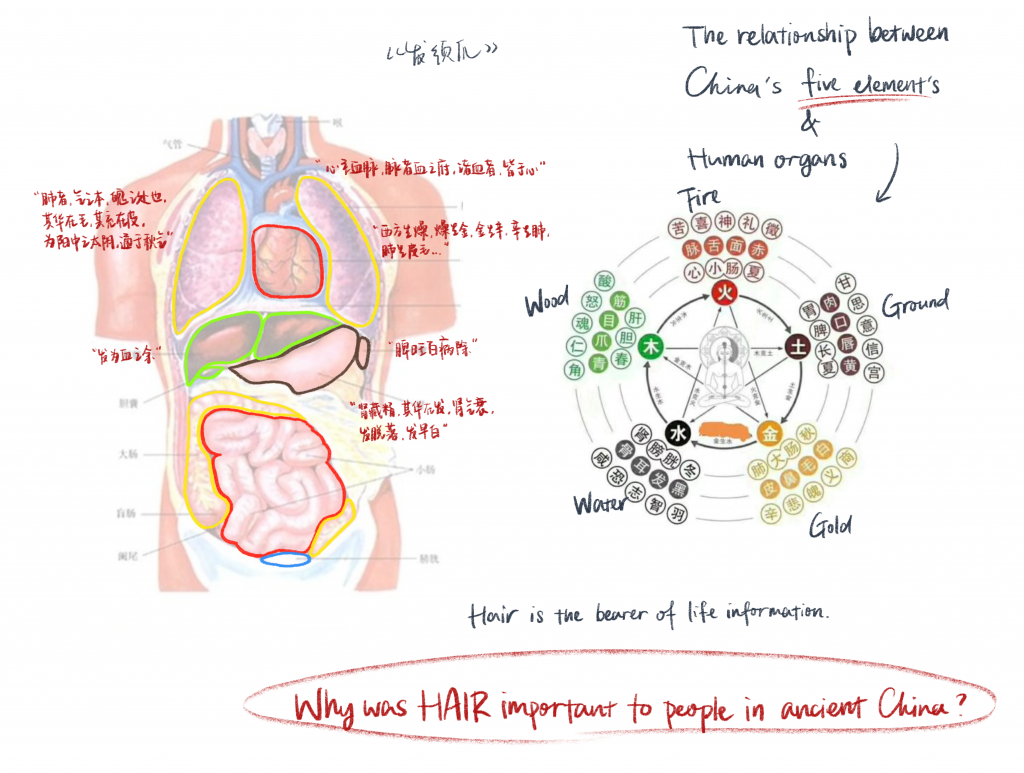 《发须爪》
The relationship between
China's five element's
&
Human organs
喉
气管
"心主血脉,脉者血之府,诸血者,皆于心"
"肺者,气之本,魄之处也,
其华在毛,其充在皮,
为阳中之太阴,通于秋气"
"西方生燥,燥生金,金生辛,辛生肺,
肺生皮毛..."
"发为血之余"
"脾旺百病除"
"肾藏精,其华在发,肾气衰,
发脱落,发早白"
胆囊
大肠
小肠
盲肠
阑尾
膀胱
Fire
苦喜神礼徵
脉舌面赤
心小肠夏
火
Wood
酸
怒筋
魂目肝
仁爪胆
角青春
木
Ground
甘
胃肉思
脾口意
长唇信
夏黄宫
土
水
金
金生水
Water
肾膀胱冬
骨耳发黑
咸恐志智羽
Gold
肺大肠秋
皮鼻毛白
辛悲魄义商
Hair is the bearer of life information.
Why was HAIR important to people in ancient China?